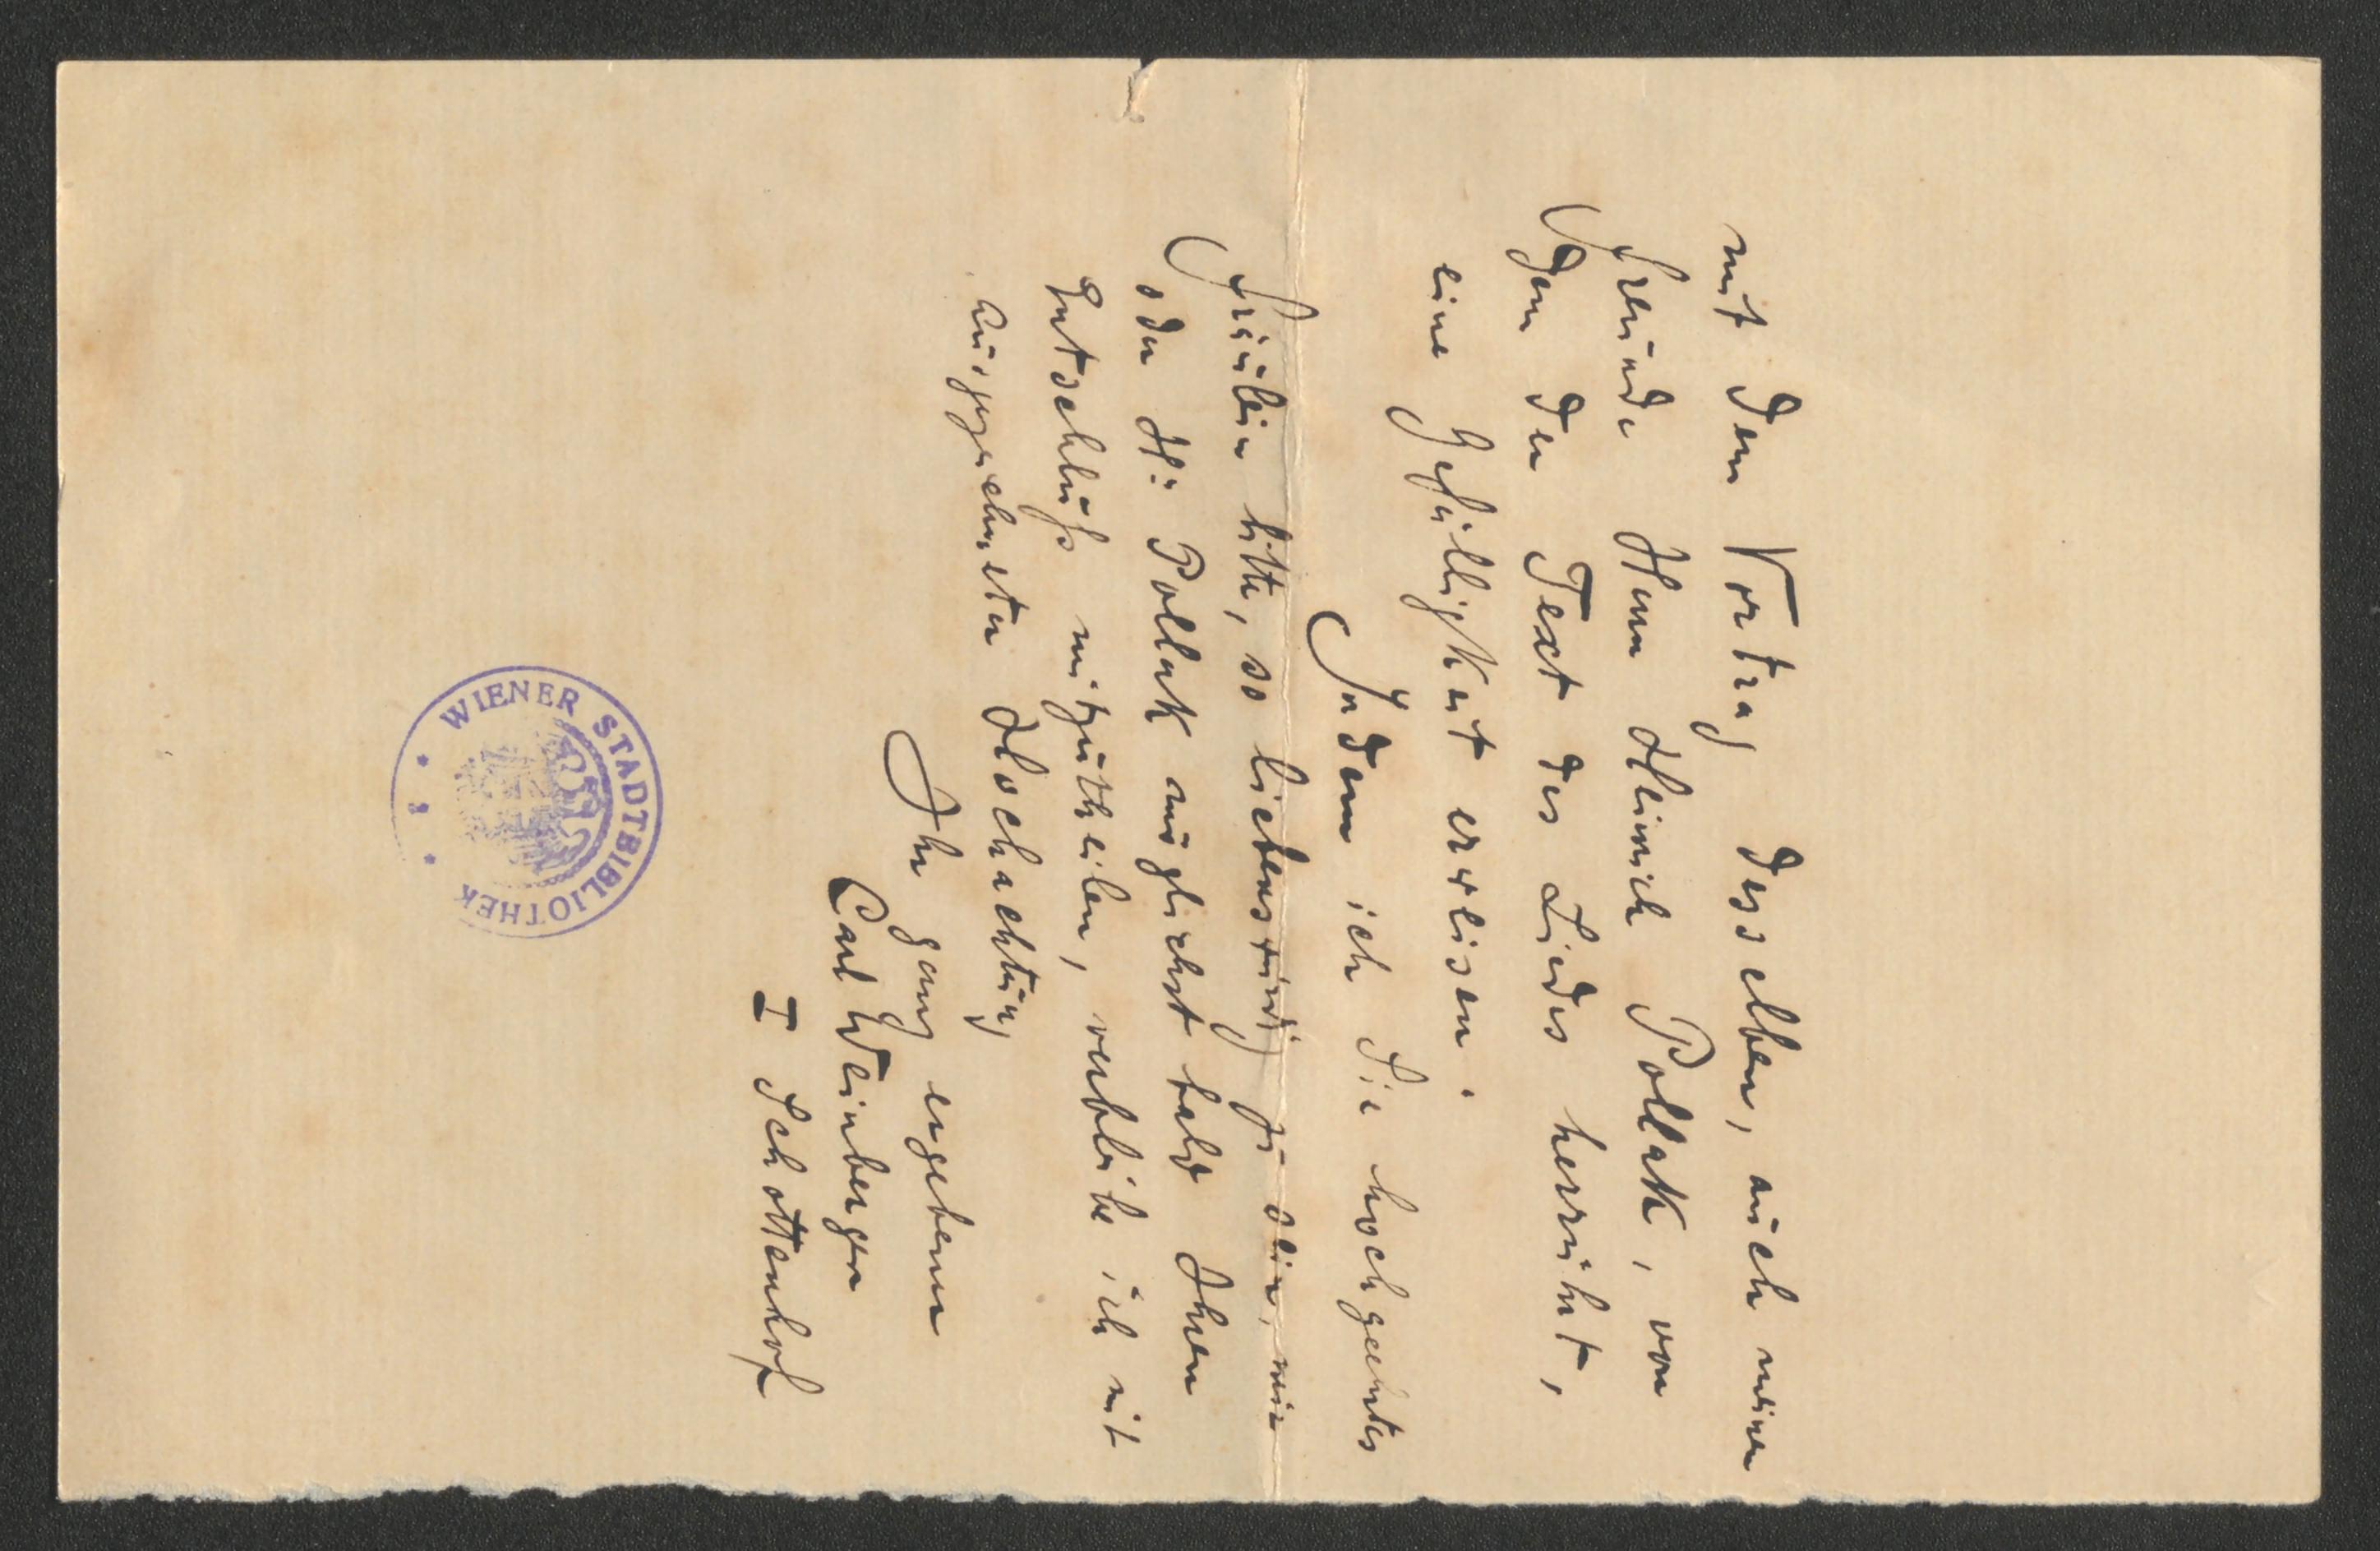 mit dem Vortrag desselben, auch meinem
Freunde Herrn Heinrich Pollak, von
dem der Text des Liedes herrührt,
eine Gefälligkeit erweisen.
Indem ich Sie hochgeehrtes
Fräulein bitte, so liebenswürdig zu sein, mir
oder H: Pollak möglichst bald Ihren
Entschluß mitzutheilen, verbleibe ich mit
ausgezeichneter Hochachtung
Ihr ganz ergebener
Carl Weinberger
I Schottenhof
WIENER STADTBIBLIOTHEK